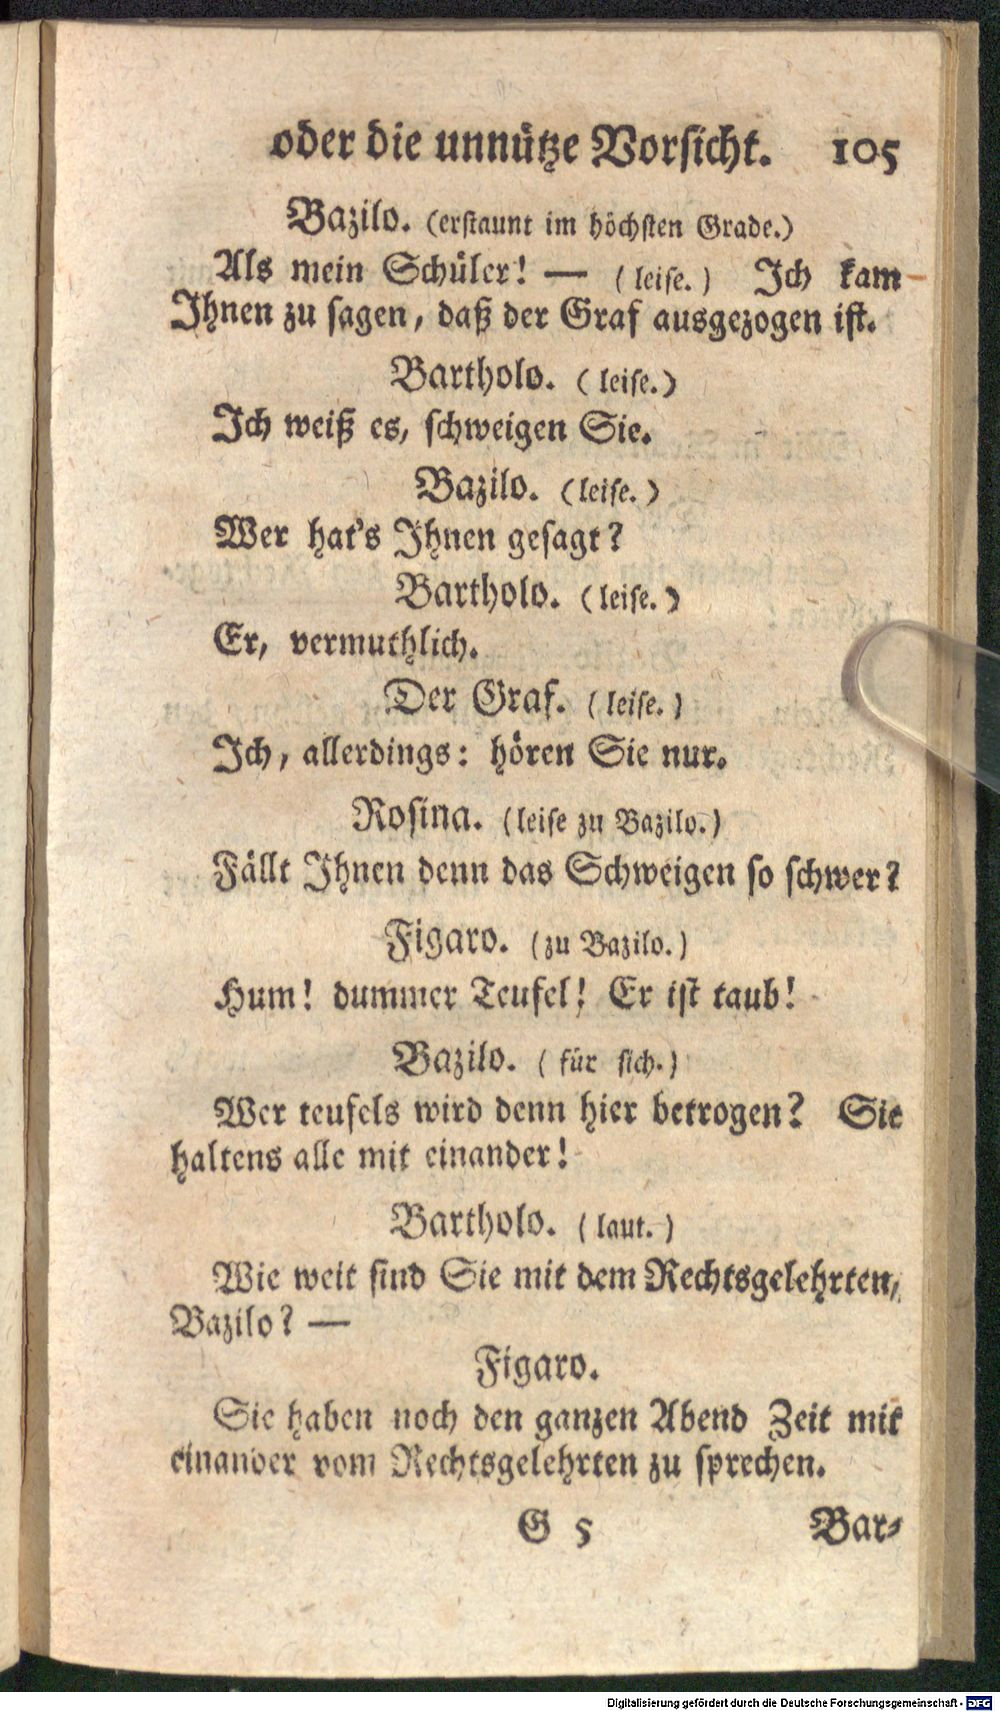 oder die unnütze Vorsicht. 105
Bazilo. (erstaunt im höchsten Grade.)
Als mein Schüler! — (leise.) Ich kam
Ihnen zu sagen, daß der Graf ausgezogen ist.
Bartholo. (leise.)
Ich weiß es, schweigen Sie.
Bazilo. (leise.)
Wer hat's Ihnen gesagt?
Bartholo. (leise.)
Er, vermuthlich.
Der Graf. (leise.)
Ich, allerdings: hören Sie nur.
Rosina. (leise zu Bazilo.)
Fällt Ihnen denn das Schweigen so schwer?
Figaro. (zu Bazilo.)
Hum! dummer Teufel! Er ist taub!
Bazilo. (für sich.)
Wer teufels wird denn hier betrogen? Sie
haltens alle mit einander!
Bartholo. (laut.)
Wie weit sind Sie mit dem Rechtsgelehrten,
Bazilo? —
Figaro.
Sie haben noch den ganzen Abend Zeit mit
einander vom Rechtsgelehrten zu sprechen.
G 5 Bar-
Digitalisierung gefördert durch die Deutsche Forschungsgemeinschaft - DFG